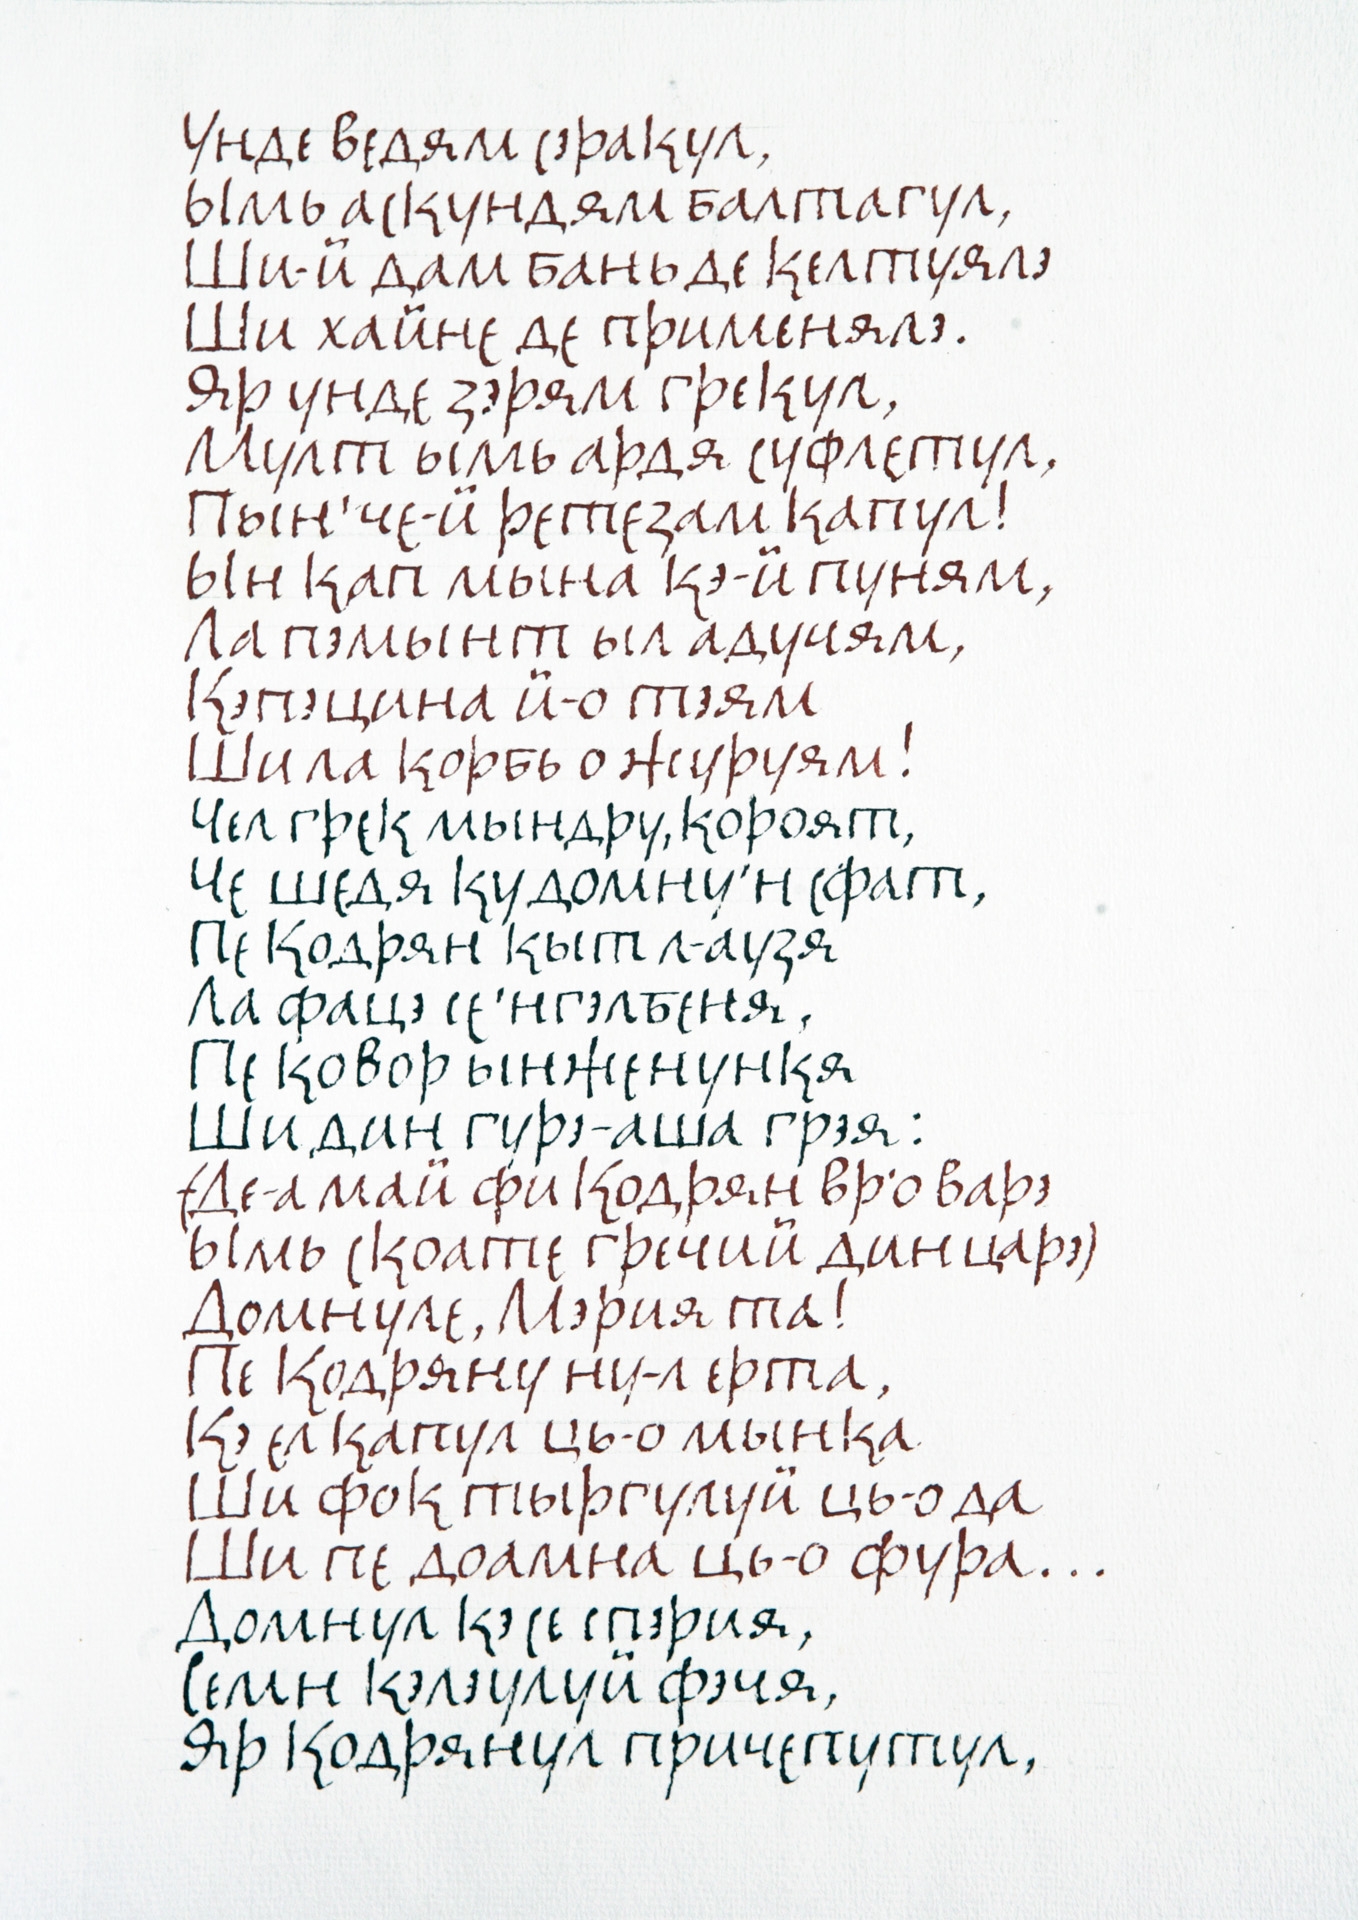 Унде ведям сэракул,
Ымь аскундям балтагул,
Ши-й дам бань де келтуялэ
Ши хайне де применялэ.
Яр унде зэрям грекул,
Мулт ымь ардя суфлетул,
Пын'че-й ретезам капул!
Ын кап мына кэ-й пуням,
Ла пэмынт ыл адучям,
Кэпэцина й-о тэям
Ши ла корбь о журуям!
Чел грек мындру, короят,
Че шедя ку домну'н сфат,
Пе Кодрян кыт л-аузя
Ла фацэ се'нгэлбеня,
Пе ковор ынженункя
Ши дин гурэ-аша грэя:
(Де-а май фи Кодрян вр'о варэ
Ымь скоате гречий дин царэ)
Домнуле, Мэрия та!
Пе Кодряну ну-л ерта,
Кэ ел капул ць-о мынка
Ши фок тыргулуй ць-о да
Ши пе доамна ць-о фура...
Домнул кэ се спэрия,
Семн кэлэулуй фэчя,
Яр Кодрянул причепутул,